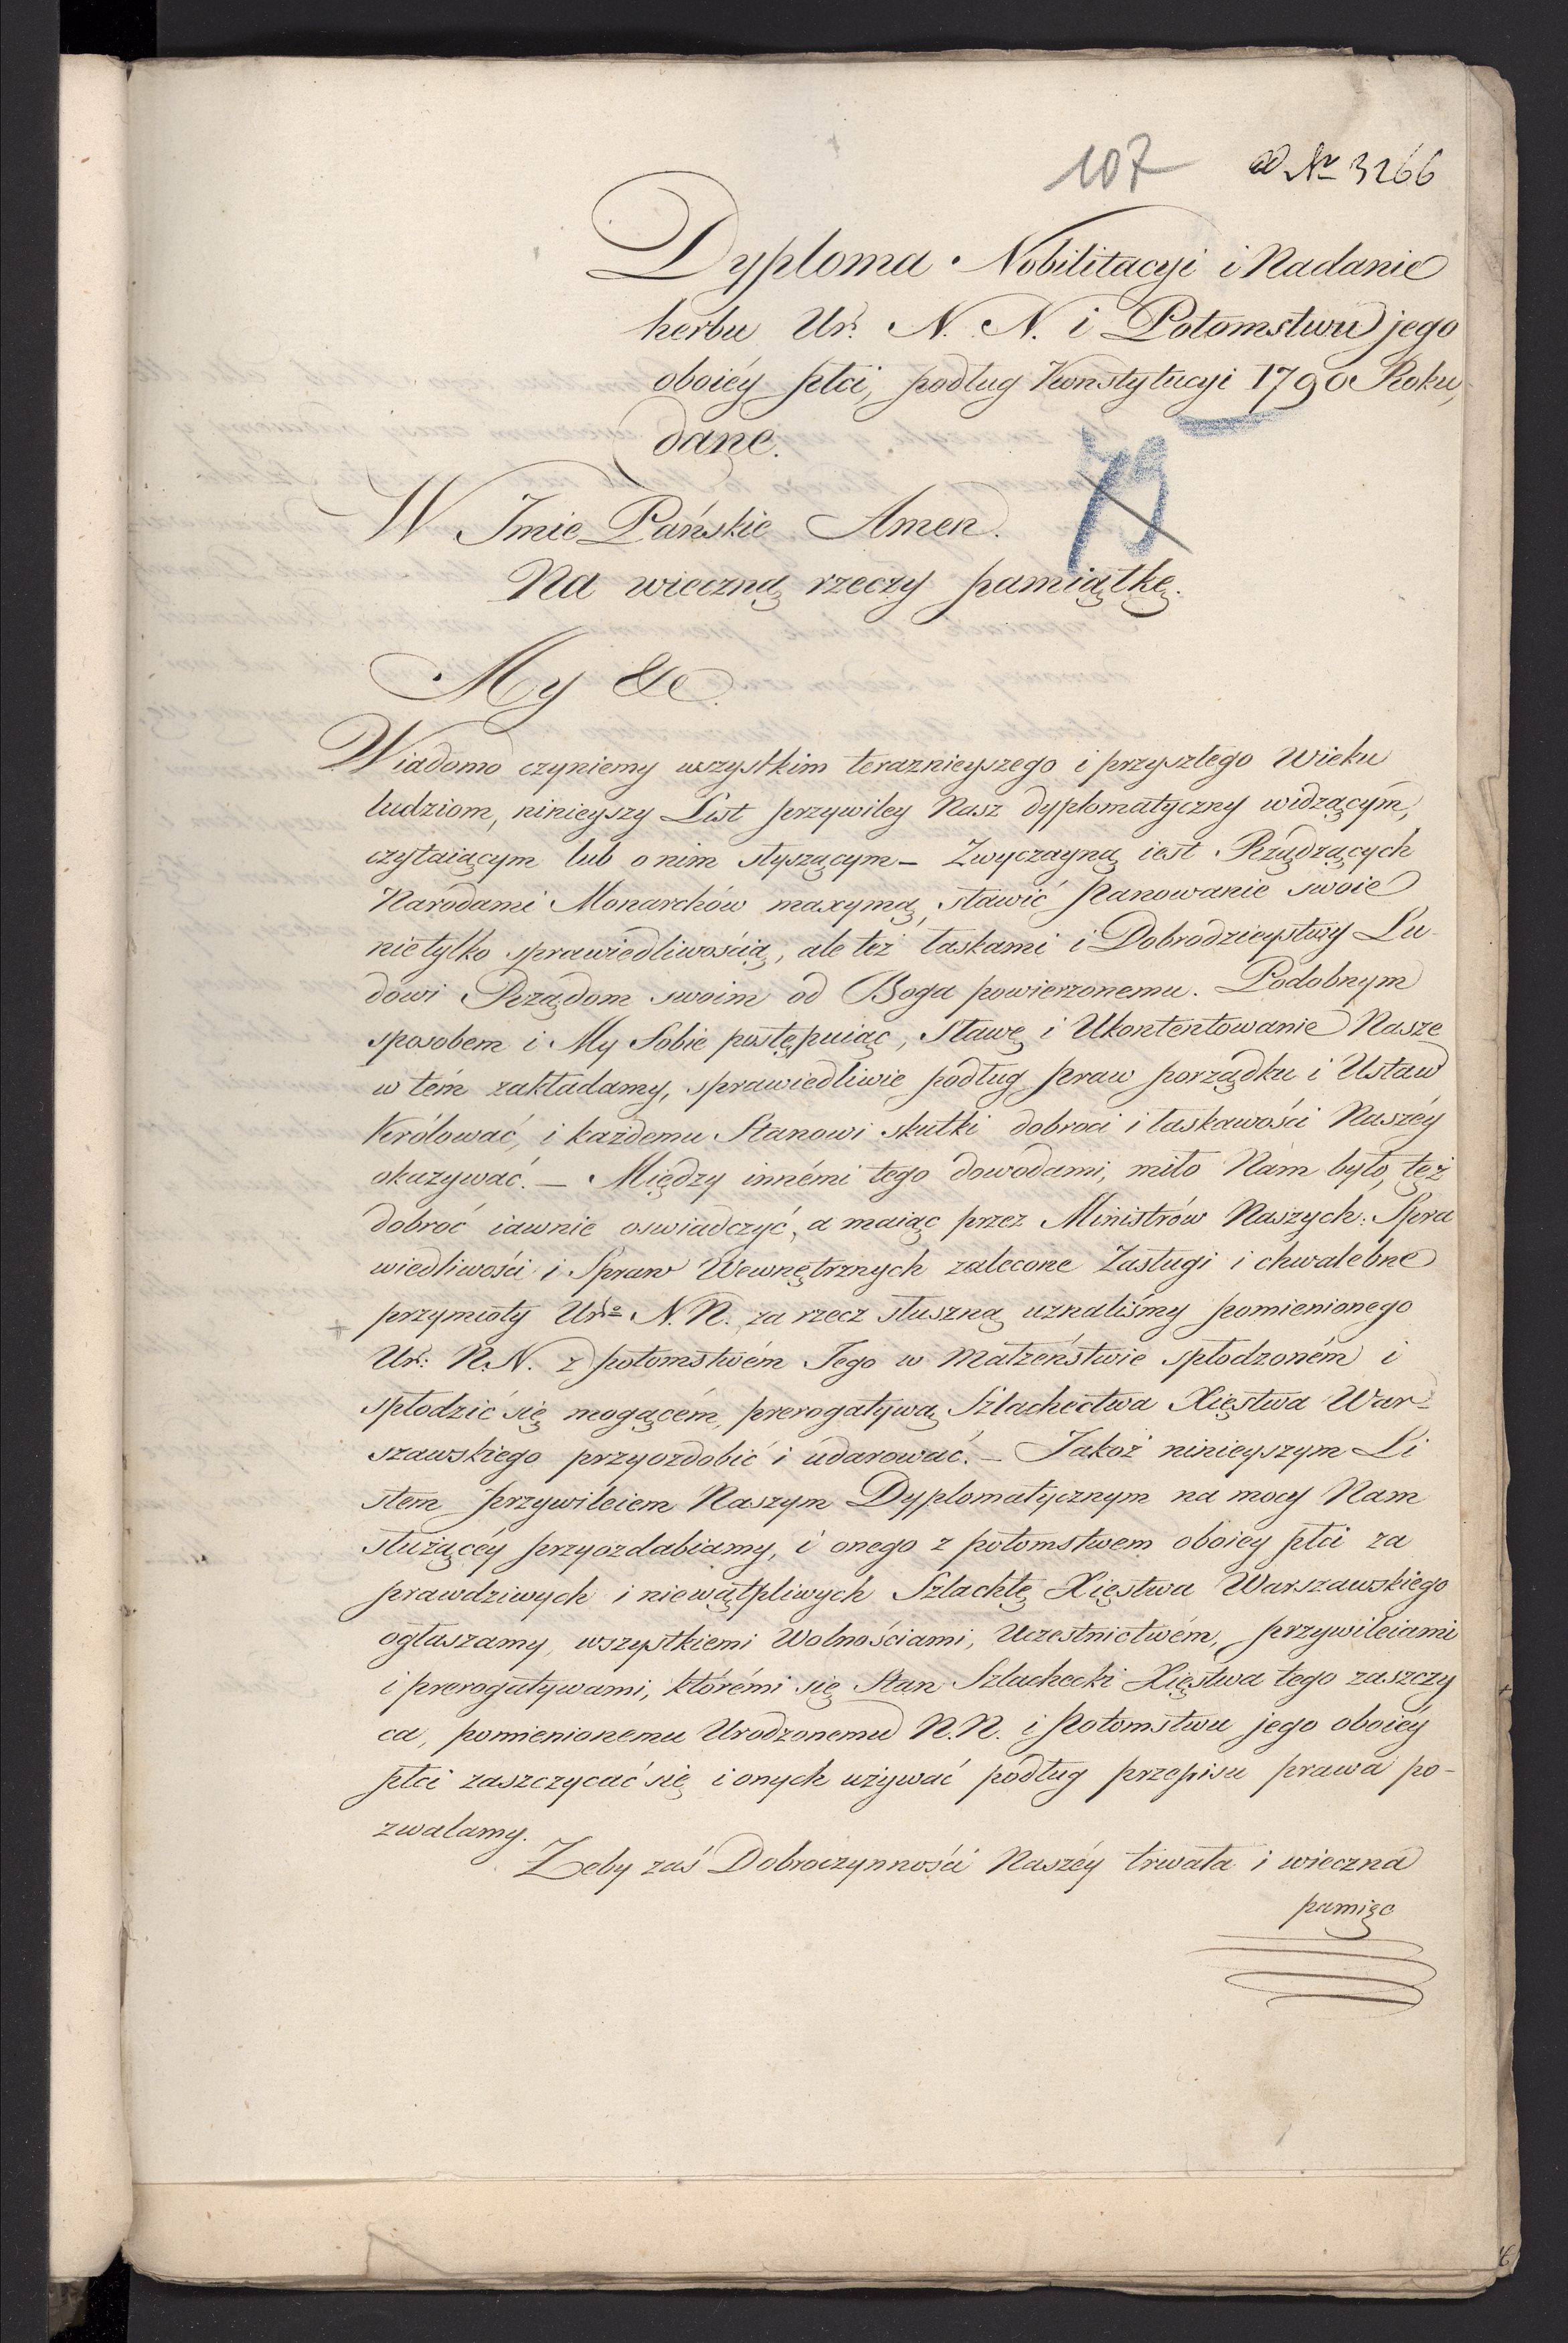 107 ad Nr 3266
Dyploma Nobilitacyi i Nadanie
herbu Ur: N. N. i Potomstwu jego
oboiéy płci, podług Konstytucyi 1790 Roku,
dane.
79
W Jmie Pańskie Amen.
Na wieczną rzeczy pamiątkę.
My &c.
Wiadomo czyniemy wszystkim teraznieyszego i przyszłego Wieku
ludziom, ninieyszy List przywiley Nasz dyplomatyczny widzącym,
czytaiącym lub o nim słyszącym – Zwyczayną iest Rządzących
Narodami Monarchów maxymą, sławić Panowanie swoie
nie tylko sprawiedliwością, ale też łaskami i Dobrodzieystwy Lu-
dowi Rządom swoim od Boga powierzonemu. Podobnym
sposobem i My Sobie postępuiąc, Sławę i Ukontentowanie Nasze
w tém zakładamy, sprawiedliwie podług Praw porządku i Ustaw
Królować, i każdemu Stanowi skutki dobroci i łaskawości Naszéy
okazywać. – Między innémi tego dowodami, miło Nam było, też
dobroć iawnie oswiadczyć, a maiąc przez Ministrów Naszych: Spra
wiedliwości i Spraw Wewnętrznych zalecone Zasługi i chwalebne
przymioty Urgo N. N. za rzecz słuszną uznaliśmy pomienionego
Ur: N. N. z potomstwém Jego w Małżeństwie spłodzoném i
spłodzić się mogącém, prerogatywą Szlachectwa Xięstwa War-
szawskiego przyozdobić i udarować. – Jakoż ninieyszym Li
stem przywileiem Naszym Dyplomatycznym na mocy Nam
służącéy przyozdabiamy, i onego z potomstwem oboiey płci za
prawdziwych i niewątpliwych Szlachtę Xięstwa Warszawskiego
ogłaszamy, wszystkiemi Wolnościami, Uczestnictwém, przywileiami
i prerogatywami, którémi się Stan Szlachecki Xięstwa tego zaszczy
ca, pomienionemu Urodzonemu N. N. i Potomstwu jego oboiéy
płci zaszczycać się i onych używać podług przepisu prawa po-
zwalamy.
Żeby zaś Dobroczynności Naszéy trwała i wieczna
pamięc